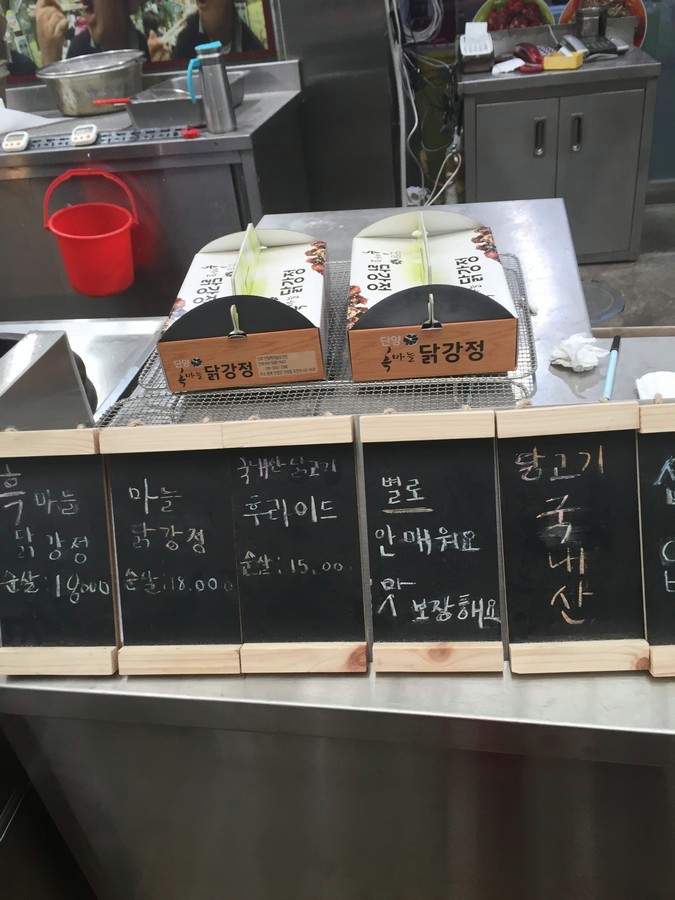 단양
흑마늘 닭강정
단양
흑마늘 닭강정
닭강정
닭강정
흑마늘
닭강정
순살:18,000
마늘
닭강정
순살:18.000
국내산 닭고기
후라이드
순살:15.00
별로
안매워요
맛
보장해요
닭고기
국
내
산